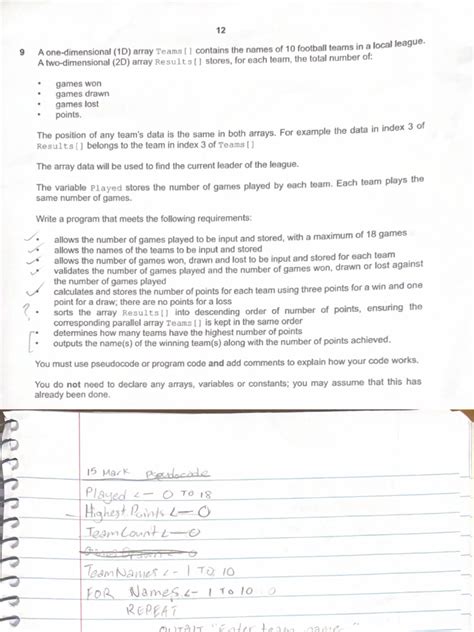 12
9 A one-dimensional (1D) array Teams[] contains the names of 10 football teams in a local league.
A two-dimensional (2D) array Results[] stores, for each team, the total number of:
• games won
• games drawn
• games lost
• points.
The position of any team's data is the same in both arrays. For example the data in index 3 of
Results[] belongs to the team in index 3 of Teams[]
The array data will be used to find the current leader of the league.
The variable Played stores the number of games played by each team. Each team plays the
same number of games.
Write a program that meets the following requirements:
• allows the number of games played to be input and stored, with a maximum of 18 games
• allows the names of the teams to be input and stored
• allows the number of games won, drawn and lost to be input and stored for each team
• validates the number of games played and the number of games won, drawn or lost against
the number of games played
• calculates and stores the number of points for each team using three points for a win and one
point for a draw; there are no points for a loss
? • sorts the array Results[] into descending order of number of points, ensuring the
corresponding parallel array Teams[] is kept in the same order
• determines how many teams have the highest number of points
• outputs the name(s) of the winning team(s) along with the number of points achieved.
You must use pseudocode or program code and add comments to explain how your code works.
You do not need to declare any arrays, variables or constants; you may assume that this has
already been done.
15 Mark Pseudocode
Played <- 0 TO 18
Highest Points <- 0
TeamCount <- 0
TeamNames <- 1 TO 10
FOR Names <- 1 TO 10
REPEAT
OUTPUT "Enter team name"